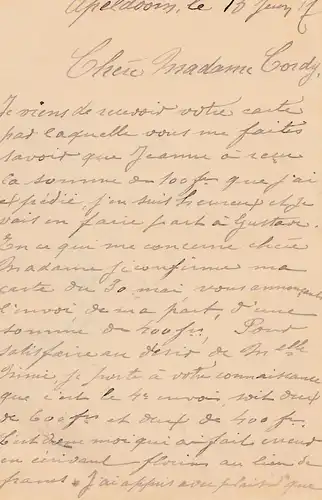 Apeldoorn, le 16 Juin 17
Chère Madame Cordy,
Je viens de recevoir votre carte
par laquelle vous me faites
savoir que Jeanne à reçu
la somme de 100 frs que j'ai
expédié, j'en suis heureux et je
vais en faire part à Gustave.
En ce qui me concerne chère
Madame je confirme ma
carte du 30 mai vous annonçant
l'envoi, de ma part, d'une
somme de 400 frs, Pour
satisfaire au désir de Melle
je porte à votre connaissance
que c'est le 4e envoi, soit deux
de 600 frs et deux de 400 frs.
C'est moi qui ai fait erreur
en écrivant florins au lieu de
francs. J'ai appris avec plaisir que